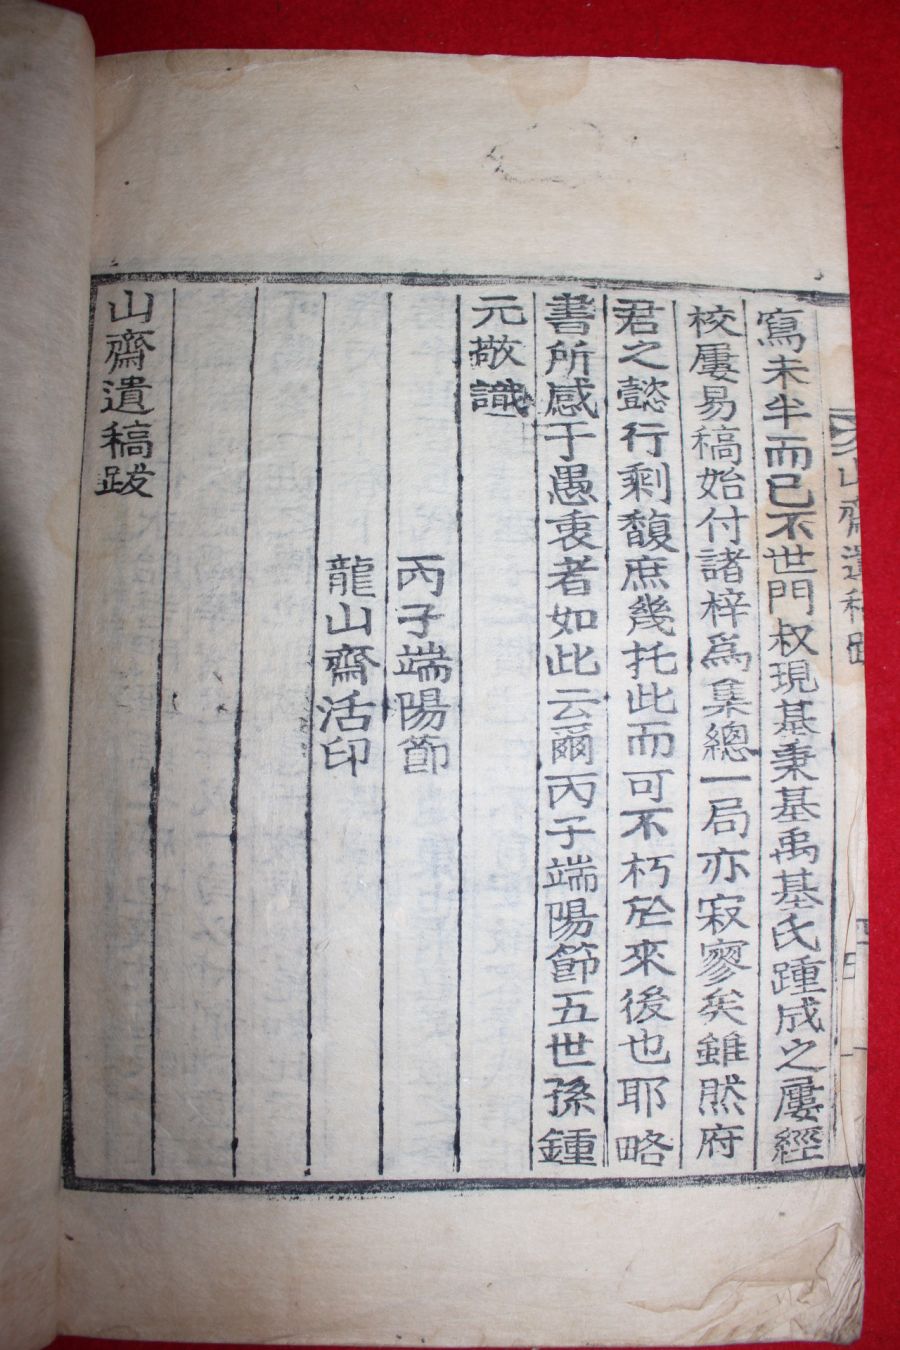 寫未半而已不世門叔現基秉基禹基氏踵成之屢經
校屢易稿始付諸梓爲集總一局亦寂寥矣雖然府
君之懿行剩馥庶幾托此而可不朽於來後也耶略
書所感于愚衷者如此云爾丙子端陽節五世孫鍾
元敬識
丙子端陽節
龍山齋活印
山齋遺稿跋
山齋遺稿跋